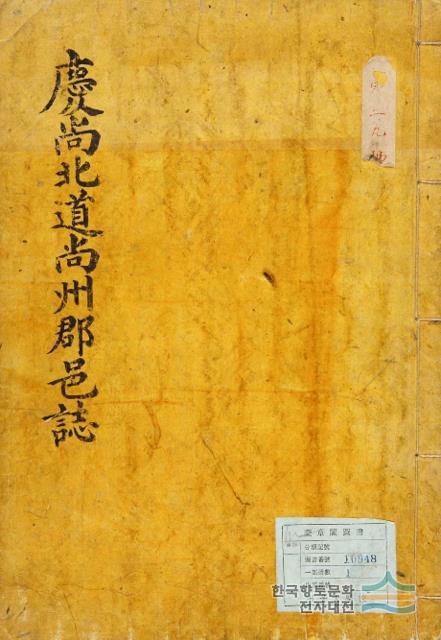 慶尚北道尚州郡邑誌
奎章閣圖書
圖書番號 10948
一部冊數 1
한국향토문화
전자대전